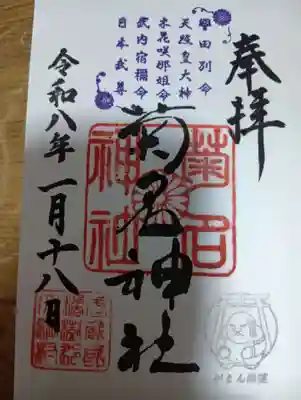 奉拝
譽田別命
天照皇大神
木花咲耶姫命
武内宿禰命
日本武尊
菊名神社
菊名
神社
令和八年一月十八日